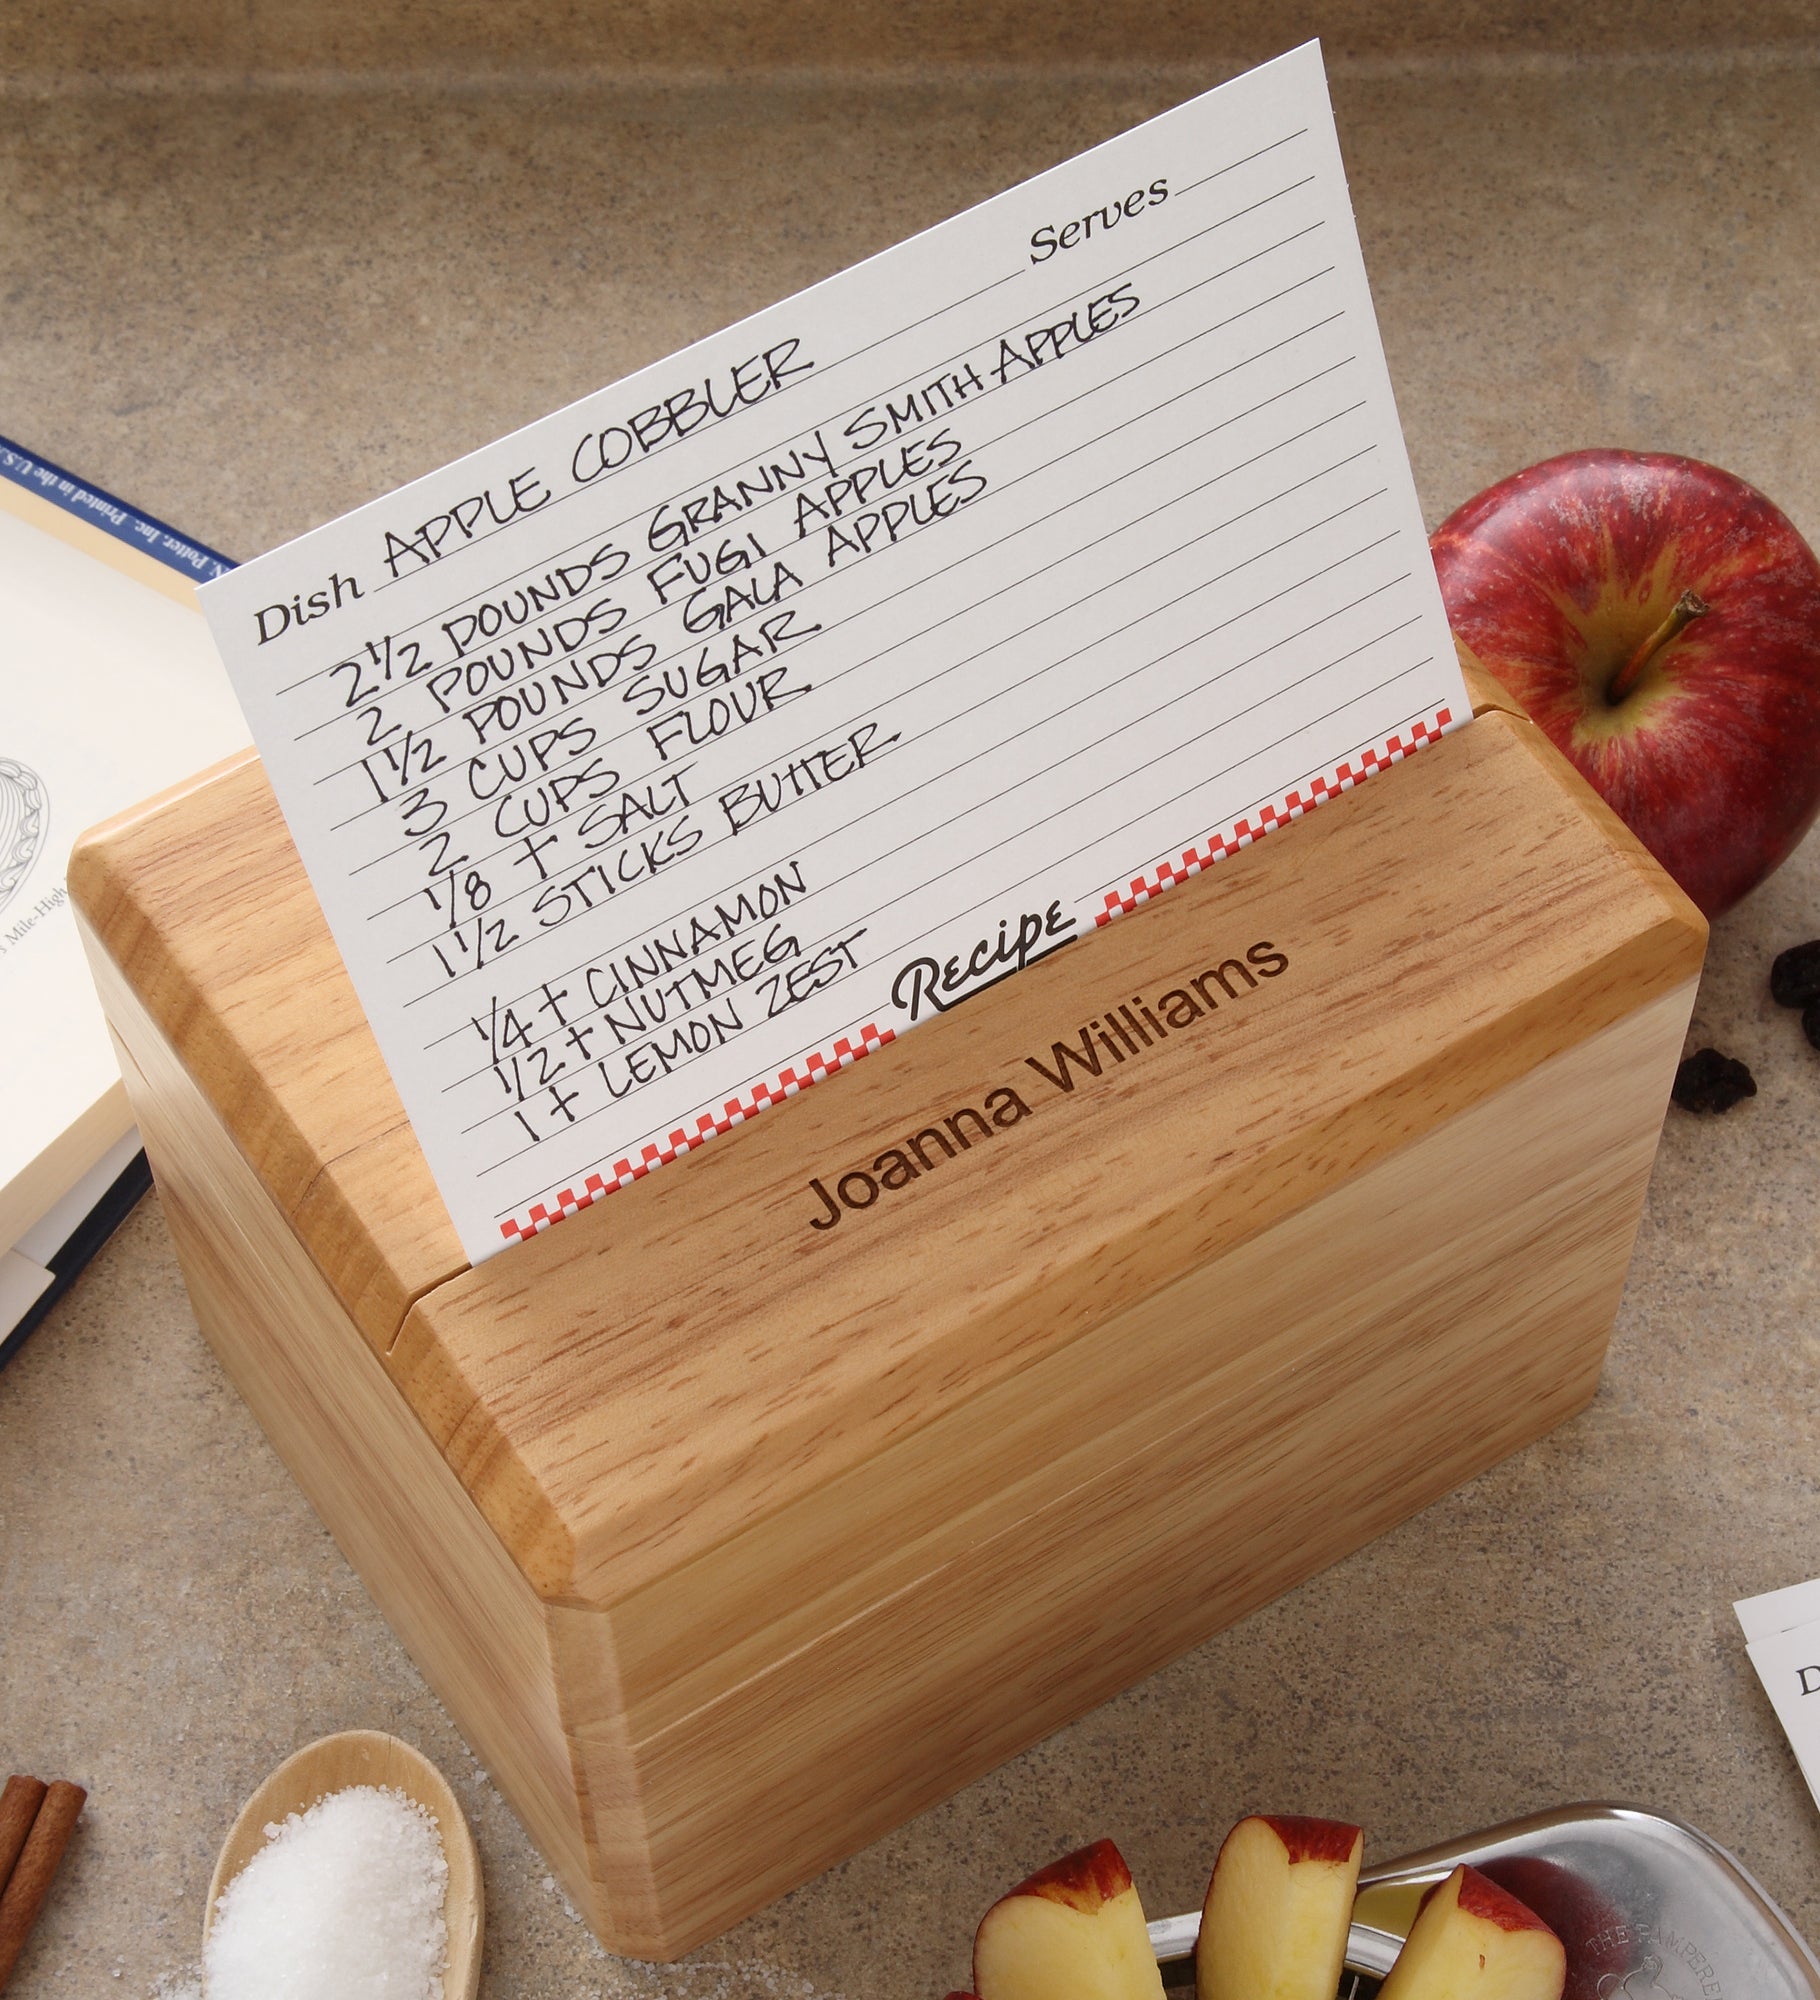 Dish APPLE COBBLER Serves
2 1/2 POUNDS GRANNY SMITH APPLES
2 POUNDS FUGI APPLES
1 1/2 POUNDS GALA APPLES
3 CUPS SUGAR
2 CUPS FLOUR
1/8 t SALT
1 1/2 STICKS BUTTER
1/4 t CINNAMON
1/2 t NUTMEG
1 t LEMON ZEST
Recipe
Joanna Williams
N. Potter, Inc. Printed in the U.S.
s Mile-High
D
THE PAMPERE